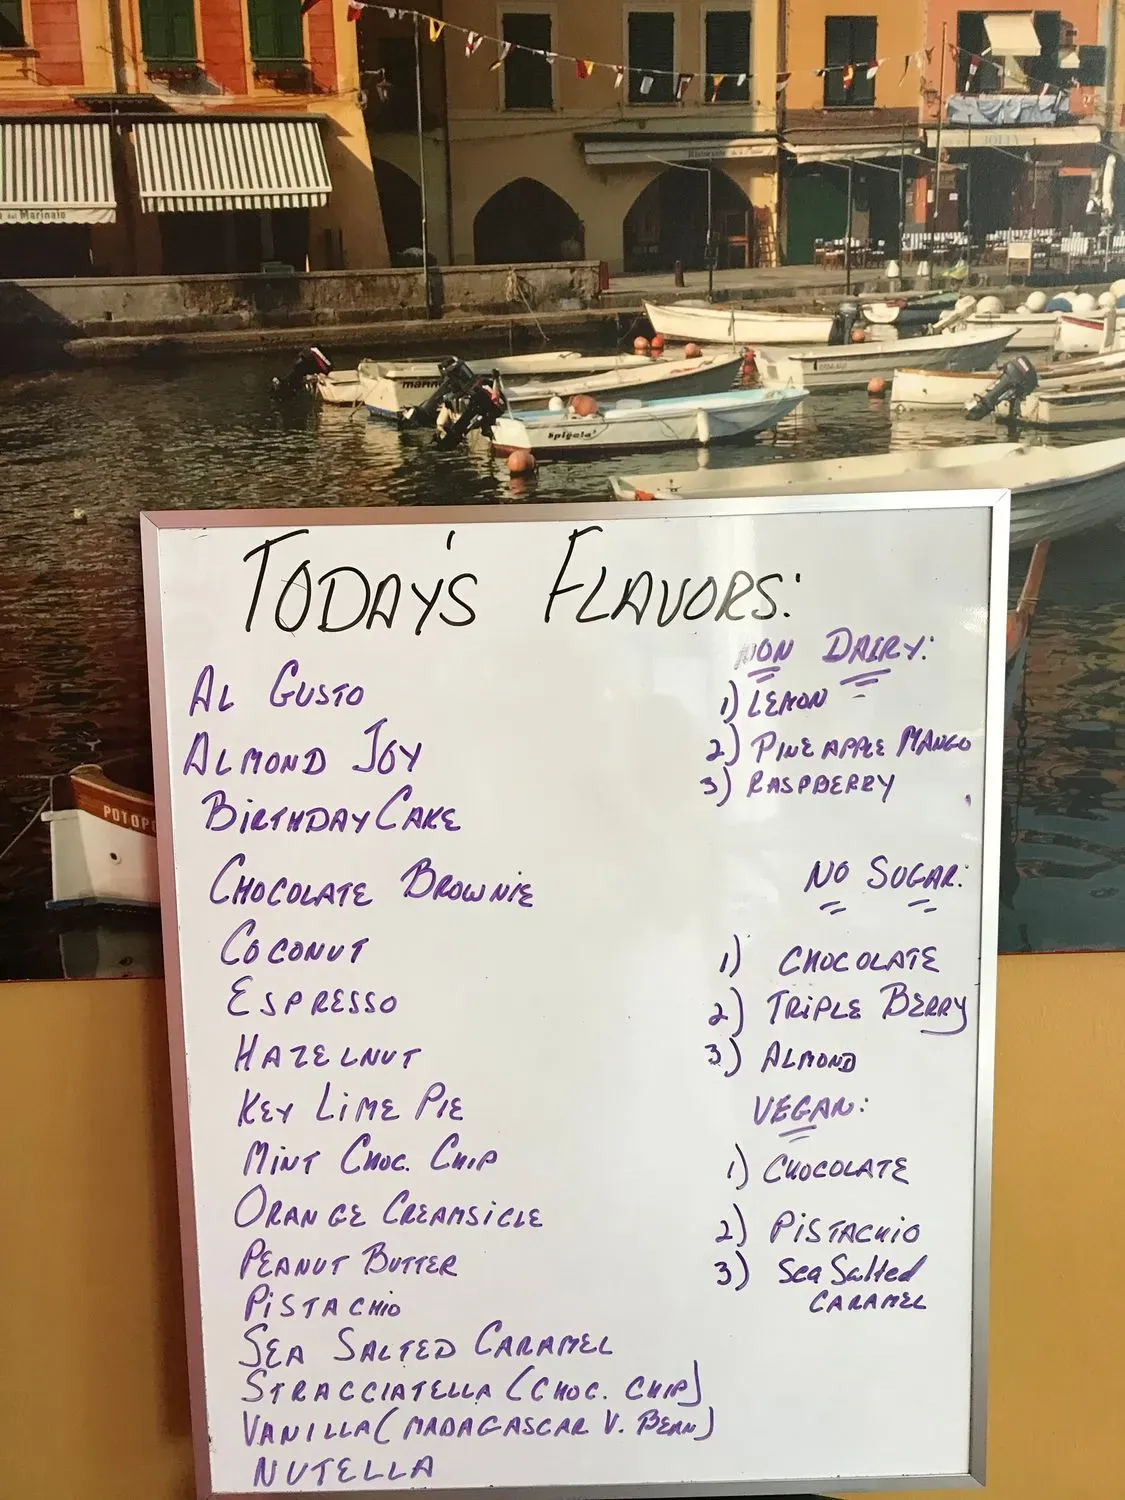 al Marinaio
Ristorante
JOLLY
marin
spigola'
POTOPE
TODAY'S FLAVORS:
AL GUSTO
ALMOND JOY
BIRTHDAY CAKE
CHOCOLATE BROWNIE
COCONUT
ESPRESSO
HAZELNUT
KEY LIME PIE
MINT CHOC. CHIP
ORANGE CREAMSICLE
PEANUT BUTTER
PISTACHIO
SEA SALTED CARAMEL
STRACCIATELLA (CHOC. CHIP)
VANILLA (MADAGASCAR V. BEAN)
NUTELLA
NON DAIRY:
1) LEMON
2) PINEAPPLE MANGO
3) RASPBERRY
NO SUGAR:
1) CHOCOLATE
2) TRIPLE BERRY
3) ALMOND
VEGAN:
1) CHOCOLATE
2) PISTACHIO
3) Sea Salted
CARAMEL